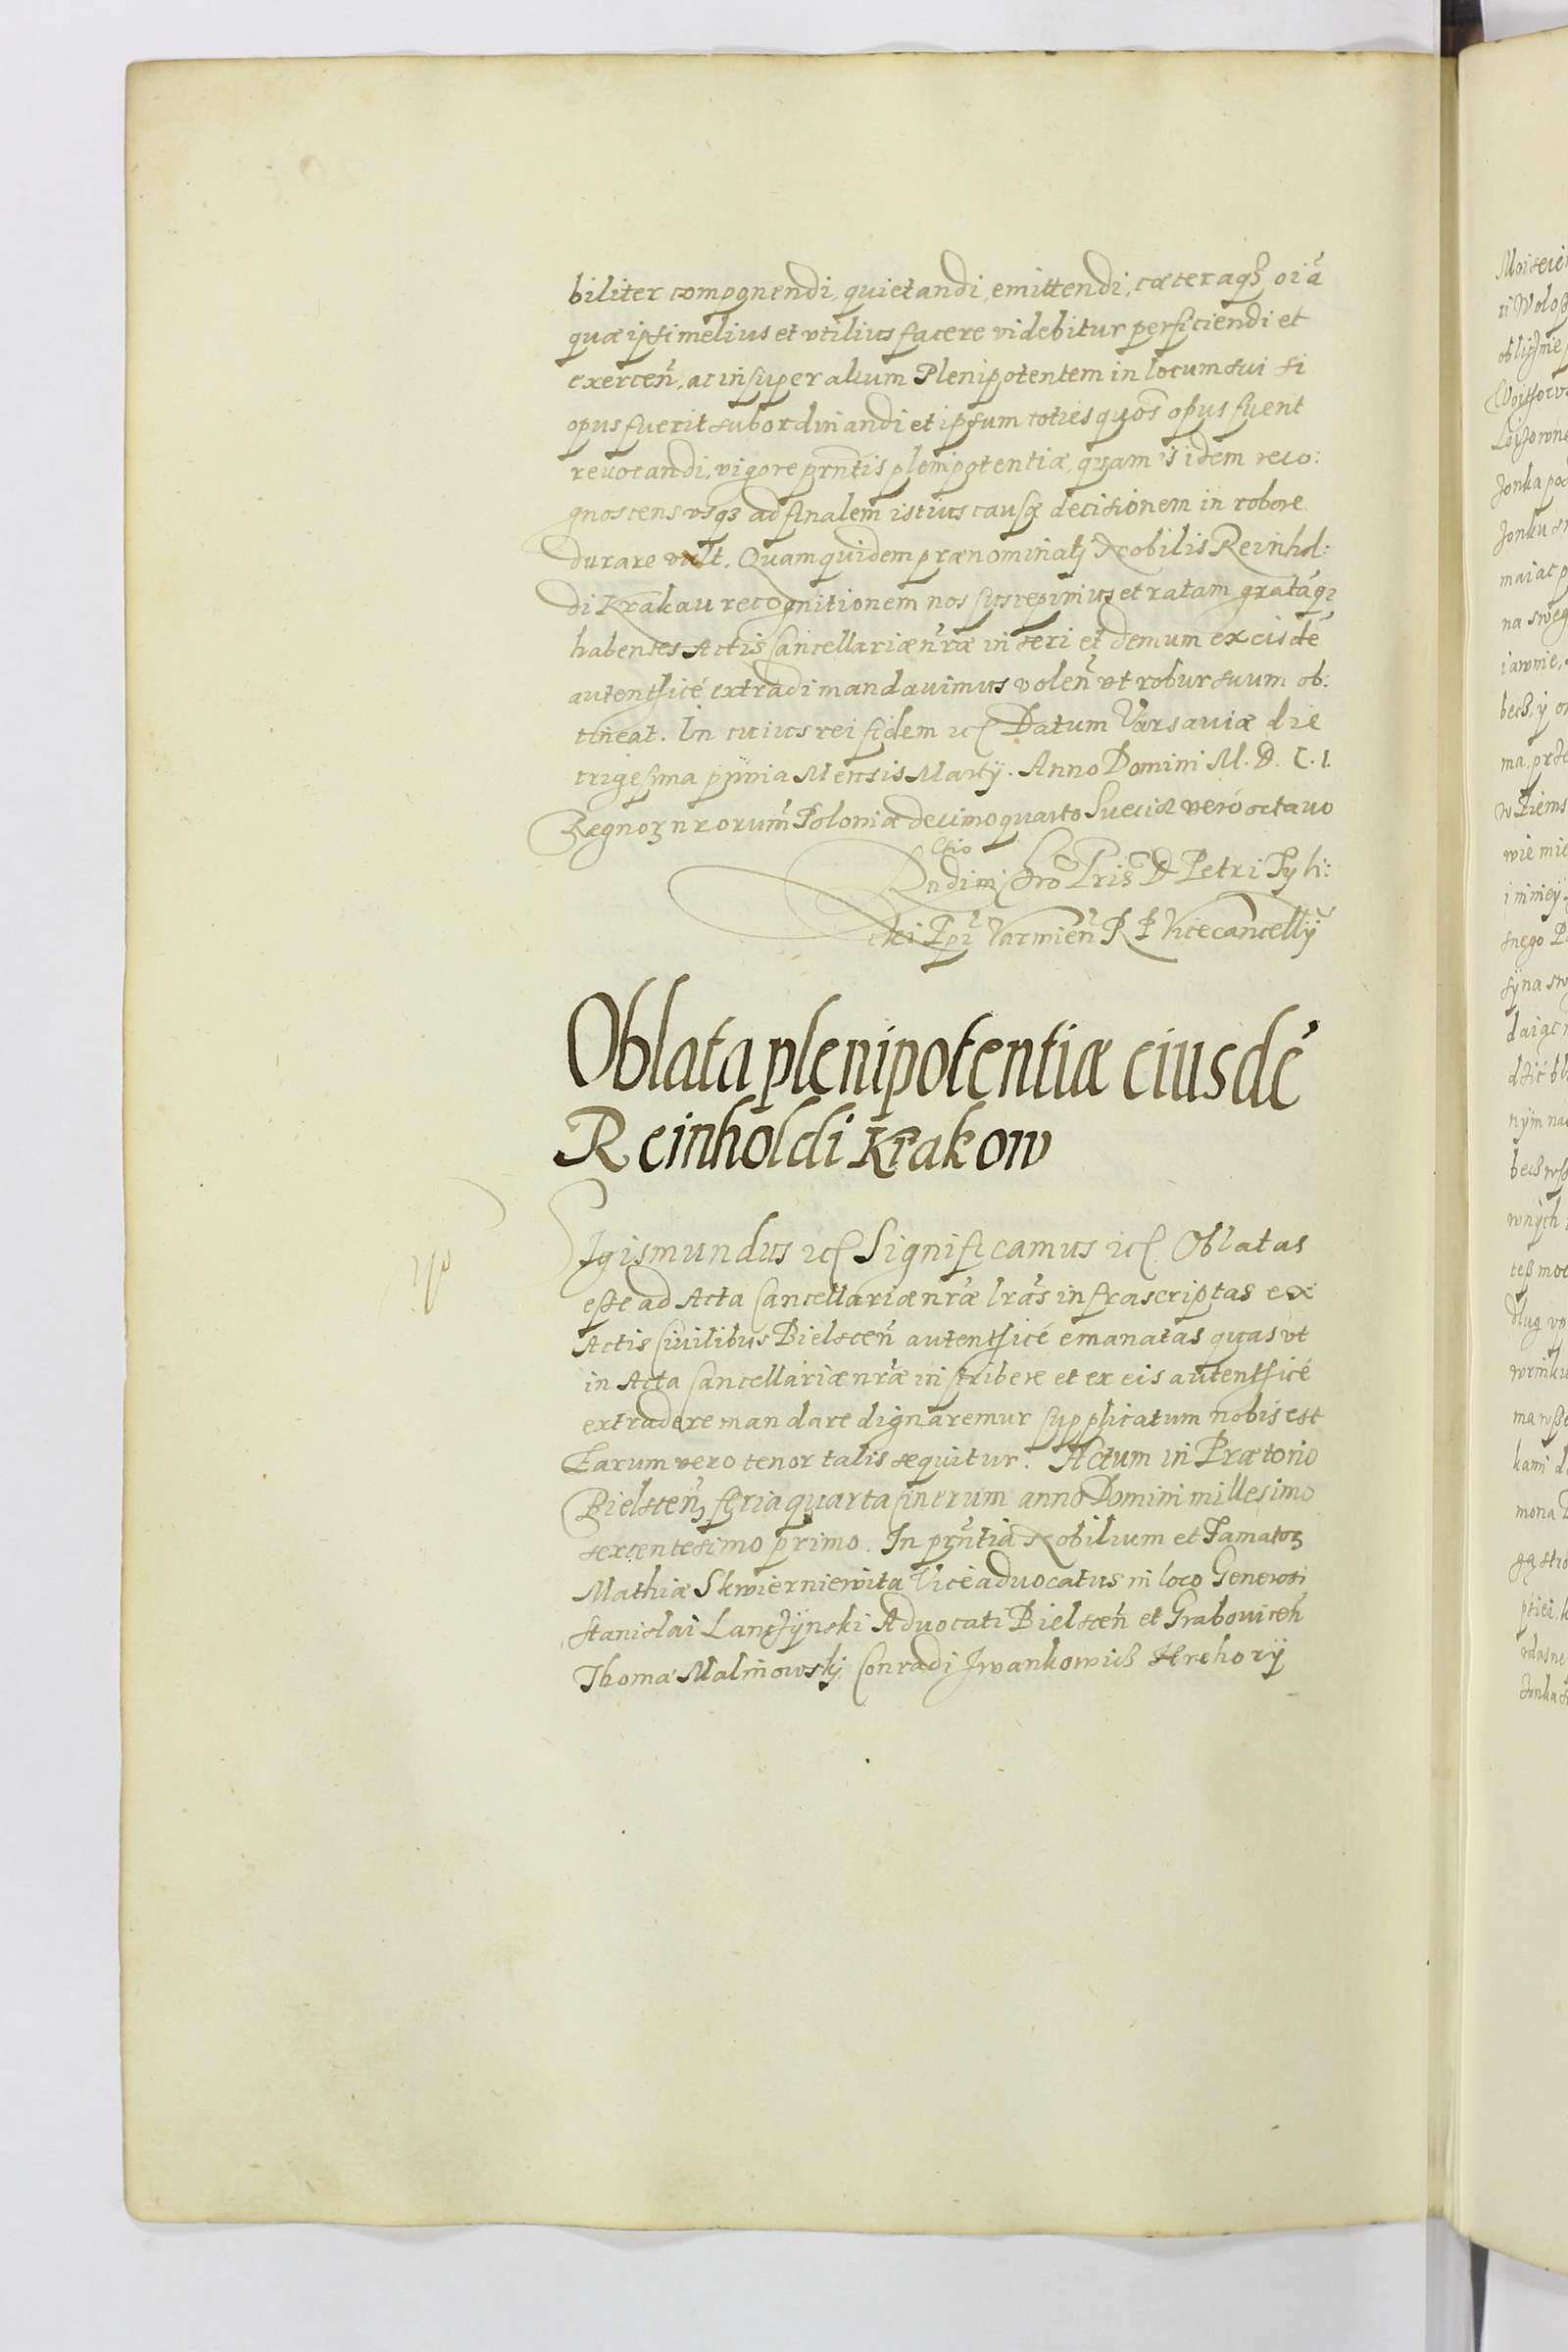 biliter componendi, quietandi, emittendi, cæteraqʒ oīa
quæ ipsi melius et vtilius facere videbitur perficiendi et
exercen̄, ac insuper alium Plenipotentem in locum sui si
opus fuerit subordinandi et ipsum toties quos̄ opus fuerit
revocandi, vigore prn̄tis plenipotentiæ, quam is idem reco:
gnoscens vsqʒ ad finalem istius causæ decisionem in robore
durare vult. Quam quidem prænominati Nobilis Reinhol:
di Krakau recognitionem nos suscepimus et ratam gratāqʒ
habentes Actis Cancellariæ nr̄æ inseri et demum ex eisdē
autenthicé extradi mandauimus volen̄ vt robur suum ob:
tineat. In cuius rei fidem etc Datum Varsauiæ die
trigesima prima Mensis Martij. Anno Domini M. D. C. I.
Regnoʒ nrorum̄ Poloniæ decimoquarto Sueciæ veró octauo
Ctio
Rndimi Petri Tyli:
cki Epī Varmien̄ R P Vicecancellij
Oblata plenipotentiæ eiusdē
Reinholdi Krakow
Sigismundus etc Significamus etc. Oblatas
esse ad Acta Cancellariæ nr̄æ lrās infrascriptas ex
Actis Ciuilibus Bielscen̄ autenthicé emanatas quas vt
in Acta Cancellariæ nr̄æ inscribere et ex eis autenthicé
extradere mandare dignaremur supplicatum nobis est
Earum vero tenor talis sequitur. Actum in Prætorio
Bielscen̄, feria quarta Cinerum anno Domini millesimo
sexcentesimo primo. In prn̄tia Nobilium et Famatoʒ
Mathiæ Skwierniewita Viceaduocatus in loco Generosi
Stanislai Lanczÿnski Aduocati Bielscen̄ et Grabovicen̄
Thoma Malinowskj Conradi Jwankowicz Hrehorÿ